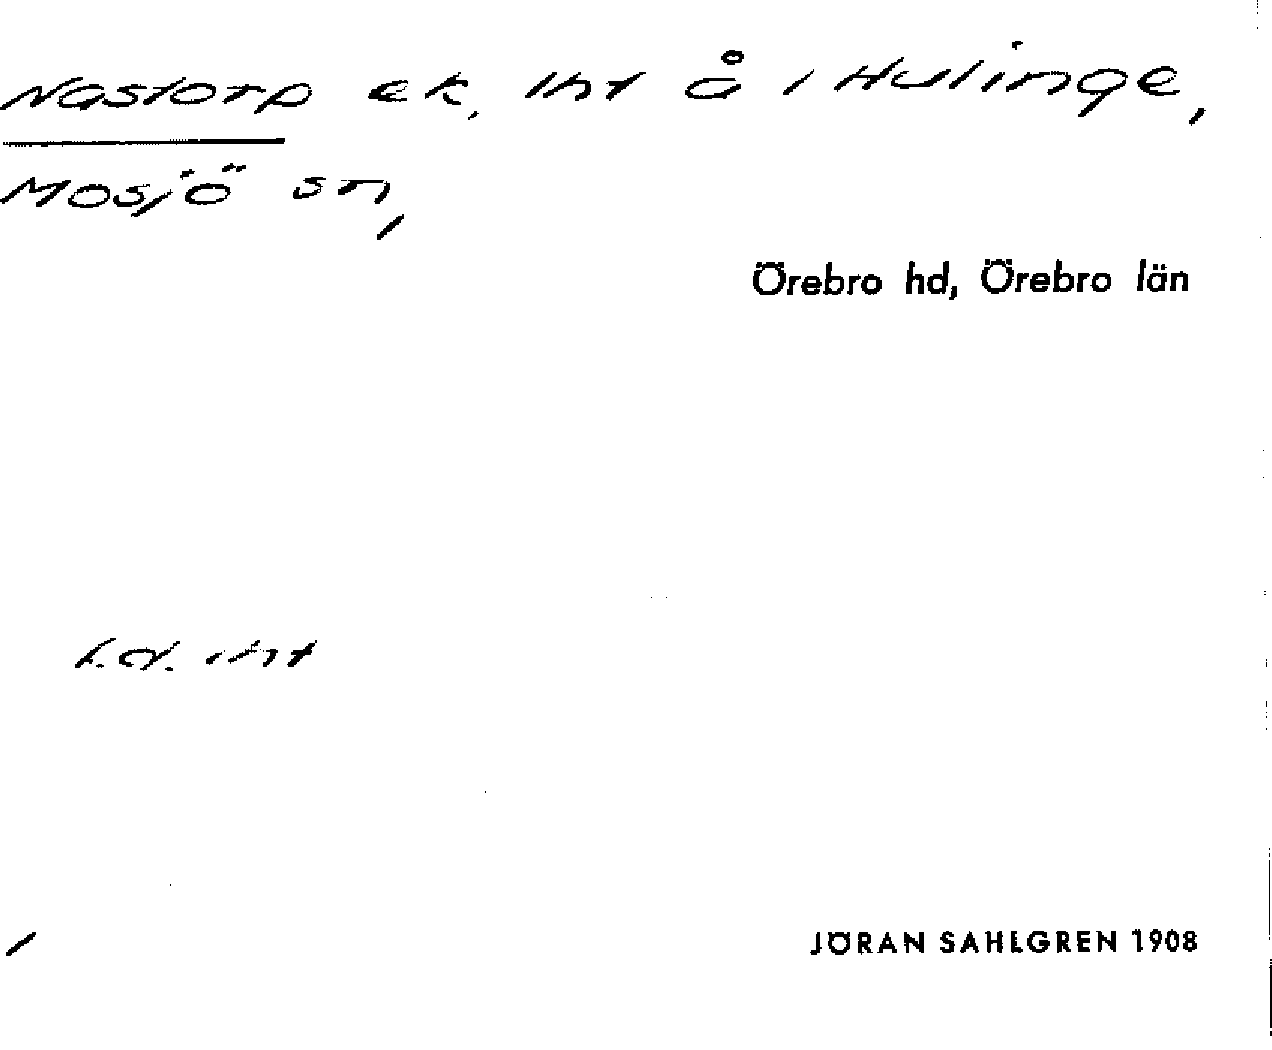 Nastorp ek. lht å i Hulinge,
Mosjö sn,
Örebro hd, Örebro län
f.d. lht
JÖRAN SAHLGREN 1908